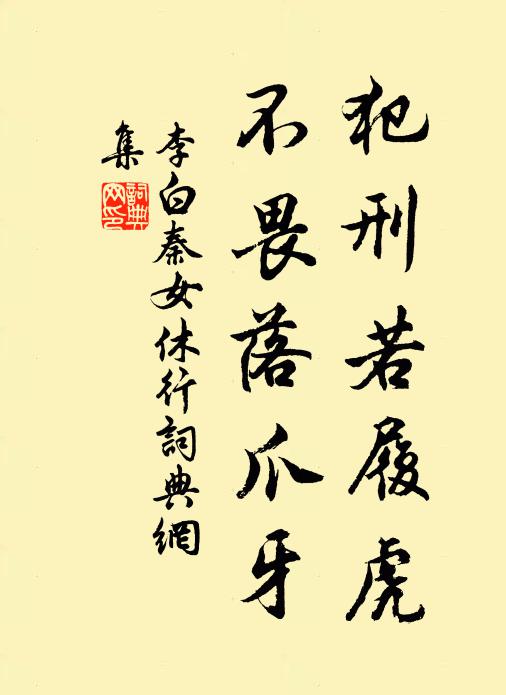 犯刑若履虎
不畏落爪牙
李白秦女休行詞典網
集
詞典
网印